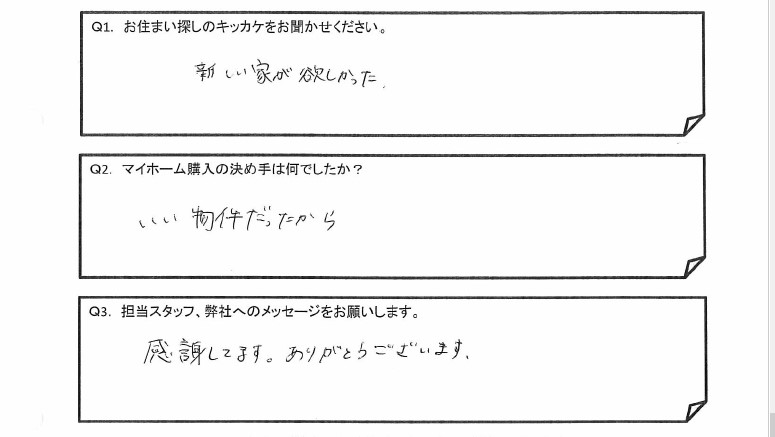 Q1. お住まい探しのキッカケをお聞かせください。
新しい家が欲しかった.
Q2. マイホーム購入の決め手は何でしたか？
いい物件だったから
Q3. 担当スタッフ、弊社へのメッセージをお願いします。
感謝してます。ありがとうございます.